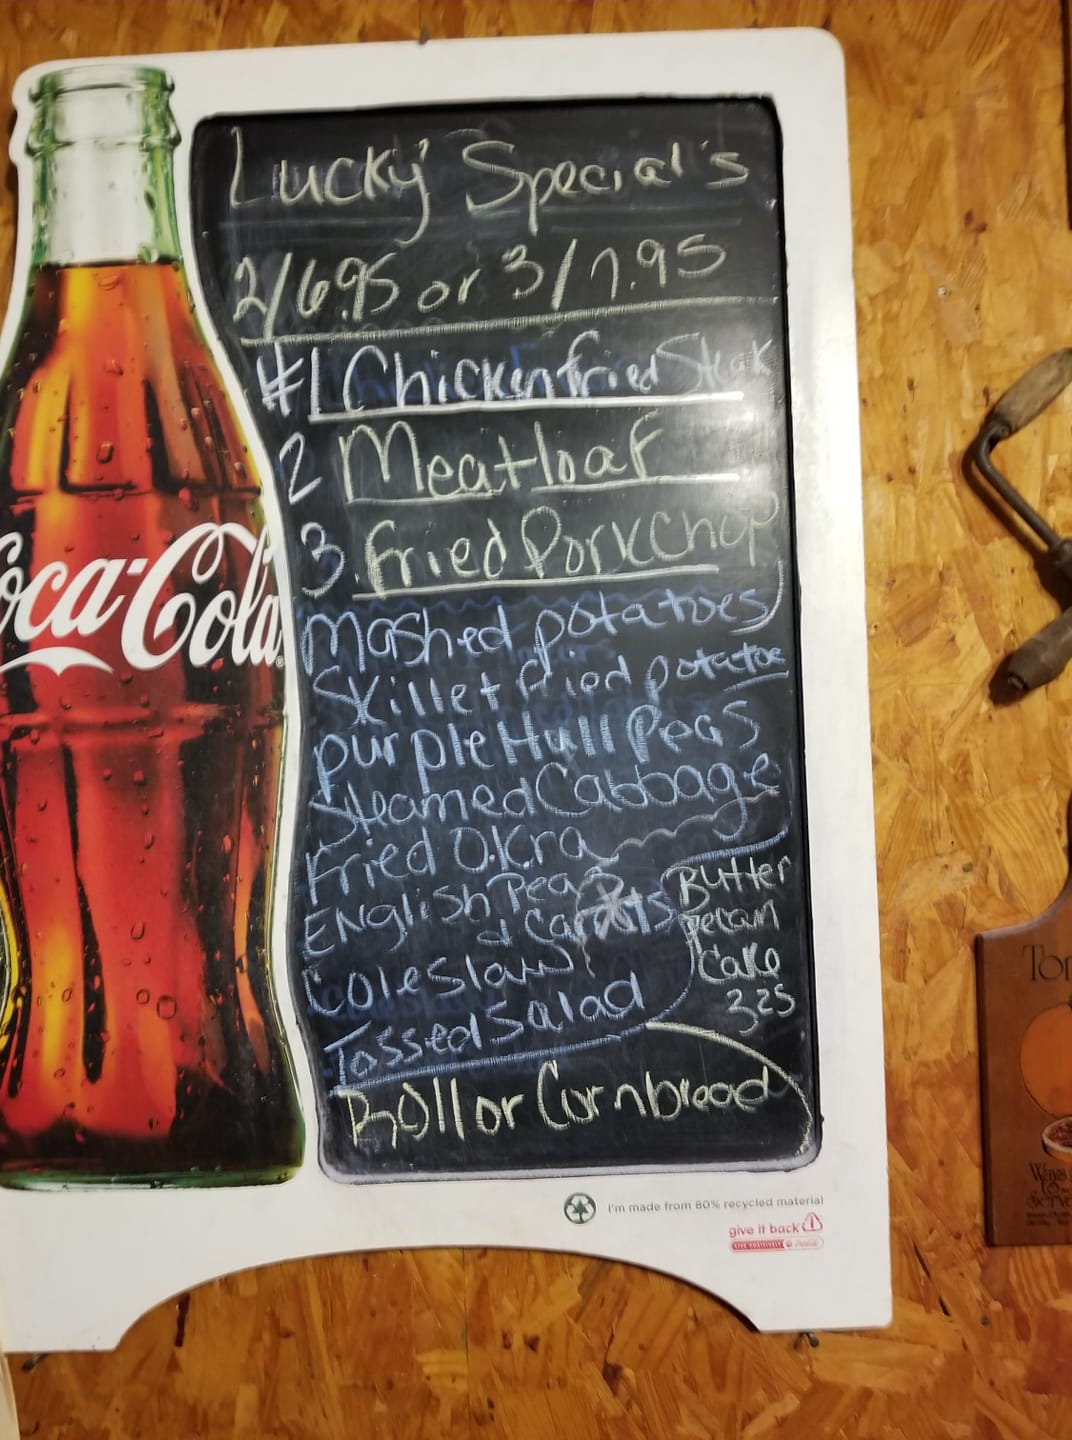 Lucky Special's
2/6.95 or 3/7.95
#1 Chicken fried Steak
2 Meatloaf
3. Fried Pork Chop
Mashed potatoes
Skillet fried potatoe
purple Hull Peas
Steamed Cabbage
Fried Okra
English Peas
& Carrots
Cole Slaw
Tossed Salad
Butter
pecan
Cake
3.25
Roll or Cornbread
Coca-Cola
I'm made from 80% recycled material
give it back